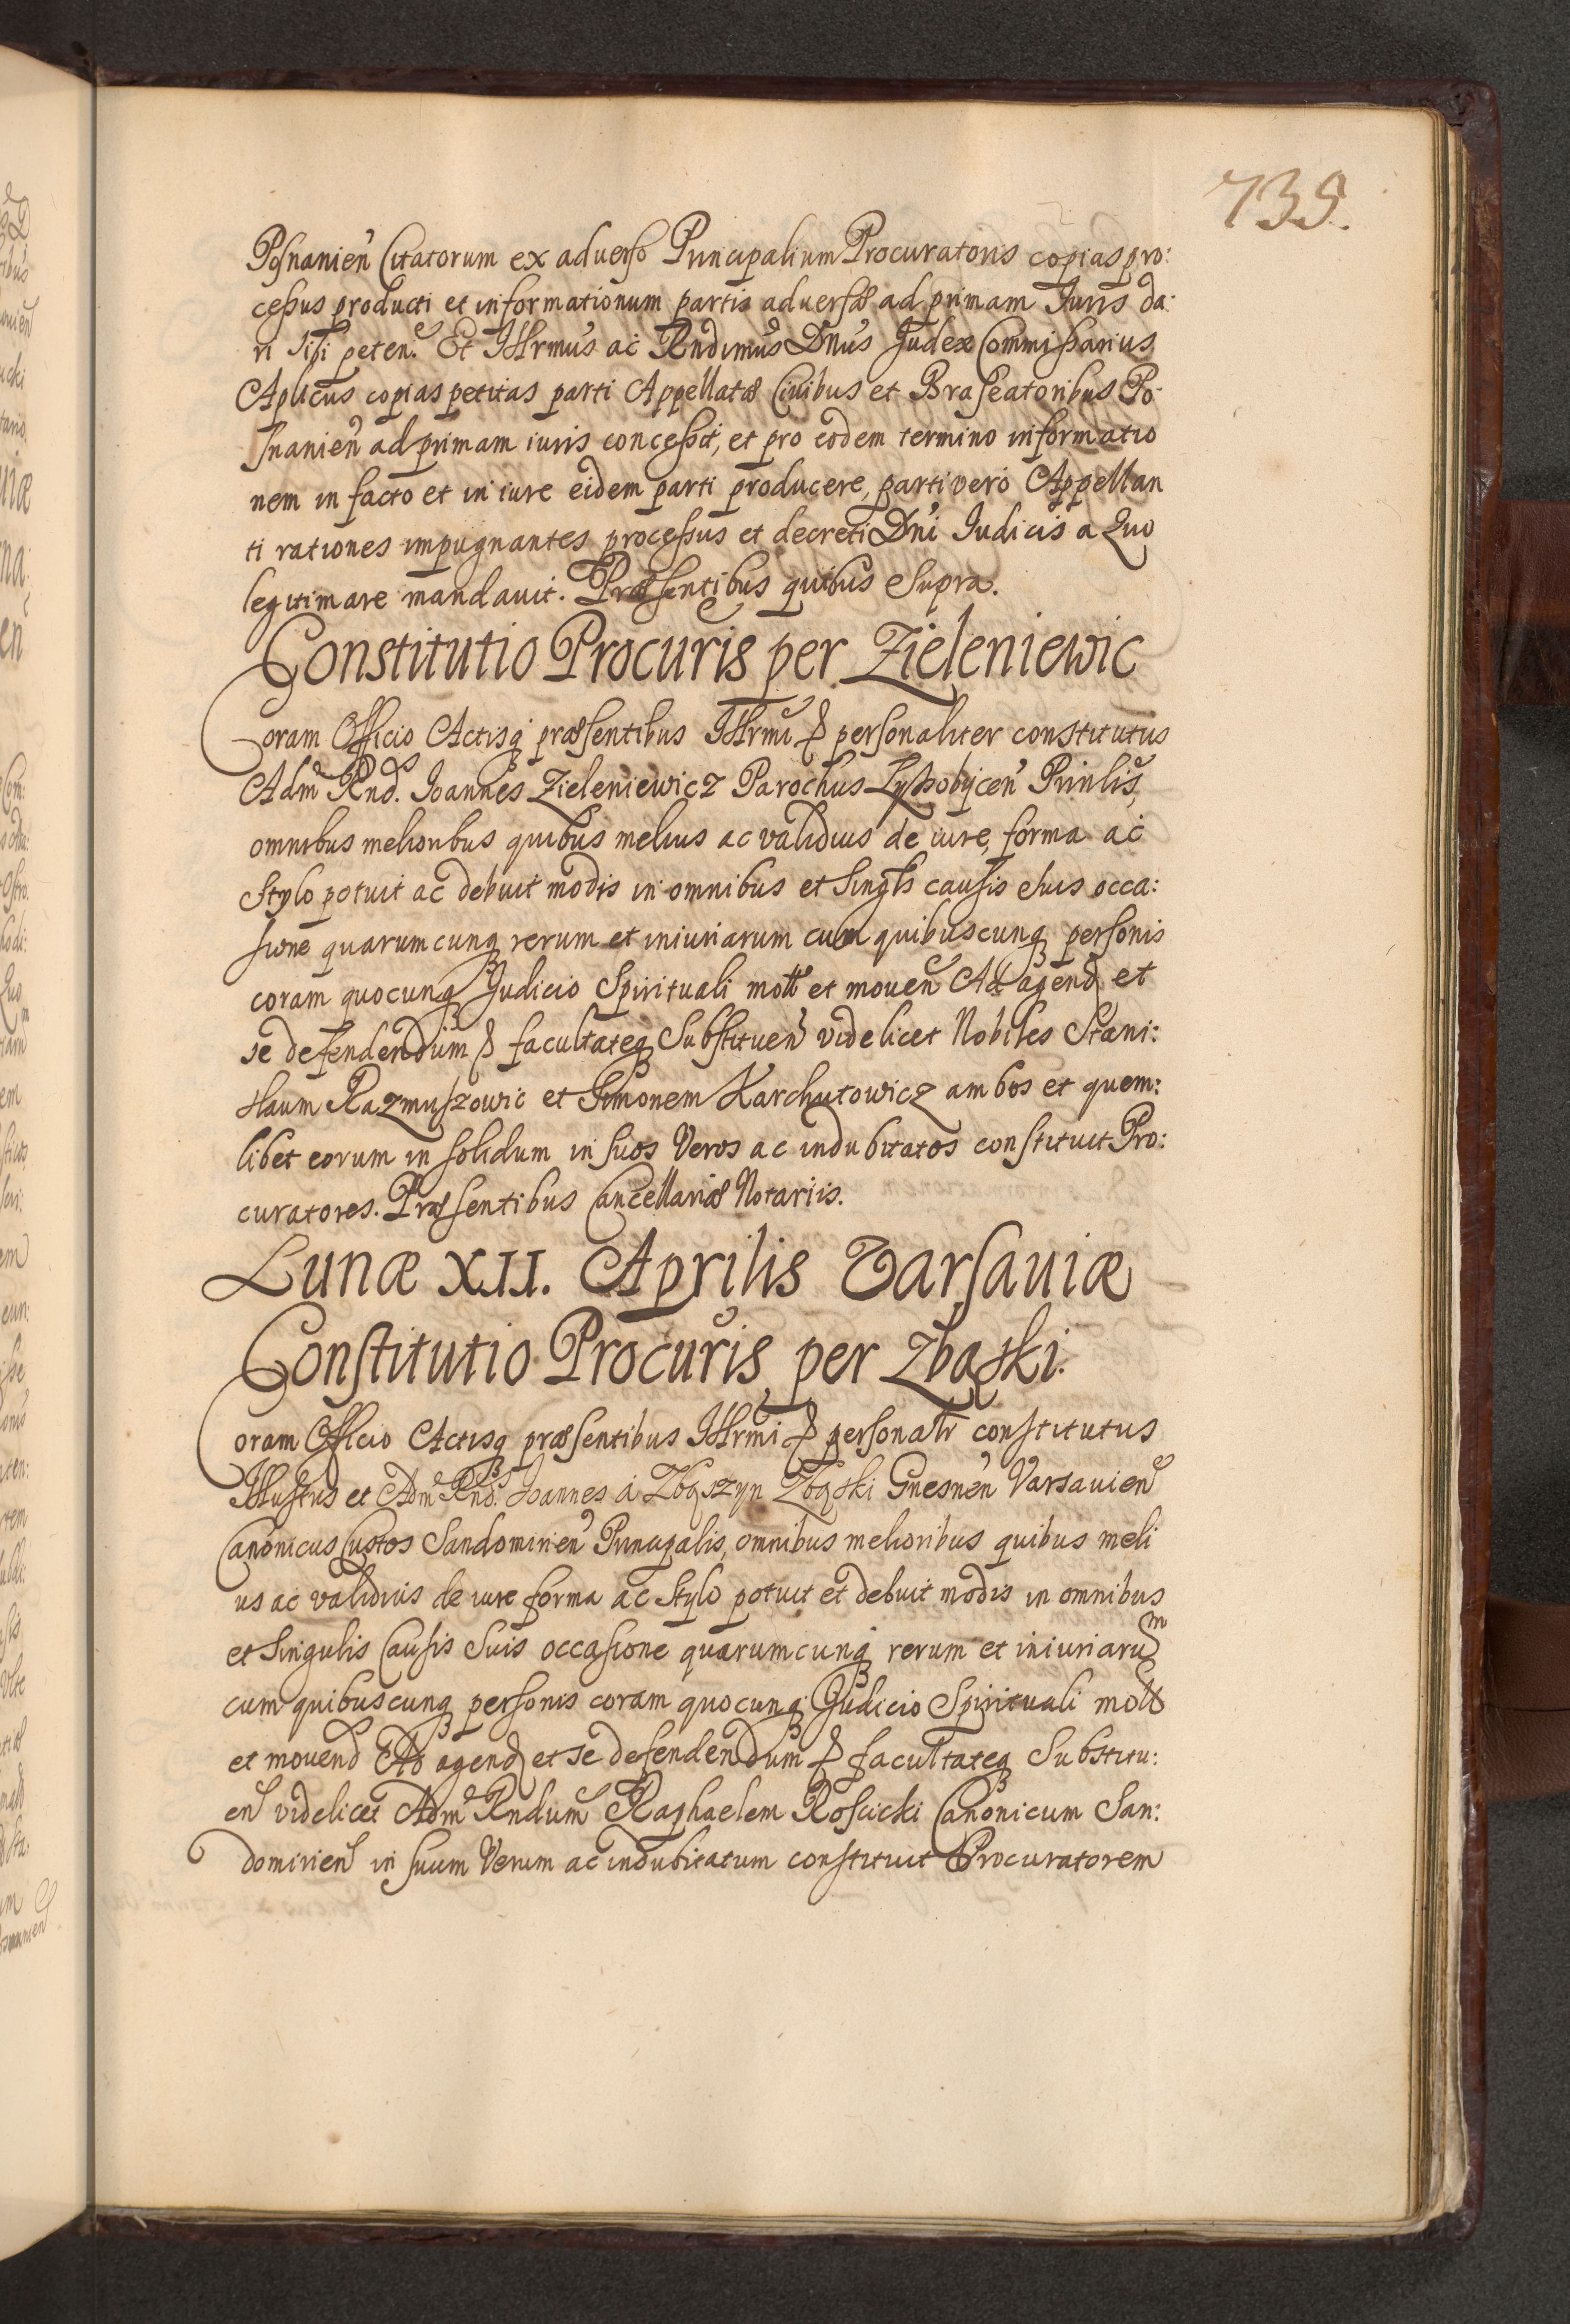 739.
Posnanien Citatorum ex aduerso Principalium Procuratoris copias pro:
cessus producti et informationum partis aduersæ ad primam Iuris da:
ri sibi peten. Et Illrmus ac Rndimus Dnus Judex Commissarius
Aplicus copias petitas parti Appellatæ Ciuibus et Braseatoribus Po-
snanien ad primam iuris concessit, et pro eodem termino informatio
nem in facto et in iure eidem parti producere, parti vero Appellan
ti rationes impugnantes processus et decreti Dni Iudicis a Quo
legitimare mandauit. Præsentibus quibus supra.
Constitutio Procuris per Zieleniewic
Coram Officio Actisq præsentibus Illrmi & personaliter constitutus
Adm Rnds. Joannes Zieleniewicz Parochus Lyssobycen Prinlis,
omnibus melioribus quibus melius ac validius de iure, forma ac
stylo potuit ac debuit modis in omnibus et singlis causis suis occa:
sione quarumcunq rerum et iniuriarum cum quibuscunq personis
coram quocunq Judicio Spirituali mott et mouen Ad agend et
se defendendum & facultateq Substituen videlicet Nobiles Stani:
slaum Razmuszowic et Simonem Karchutowicz ambos et quem:
libet eorum in solidum in suos Veros ac indubitatos constituit Pro:
curatores. Præsentibus Cancellariæ Notariis.
Lunæ XII. Aprilis Varsauiæ
Constitutio Procuris per Zbąski.
Coram Officio Actisq præsentibus Illrmi & personalr constitutus
Illustris et Adm Rnds. Joannes a Zbąszyn Zbąski Gnesnen Varsauien
Canonicus Custos Sandomirien Principalis, omnibus melioribus quibus meli
us ac validius de iure forma ac stylo potuit et debuit modis in omnibus
et singulis Causis suis occasione quarumcunq rerum et iniuriarum
cum quibuscunq personis coram quocunq Judicio Spirituali mott
et mouend Ad agend et se defendendum & facultateq Substitu:
en videlicet Adm Rndum Raphaelem Roscicki Canonicum San:
domirien in suum Verum ac indubitatum constituit Procuratorem